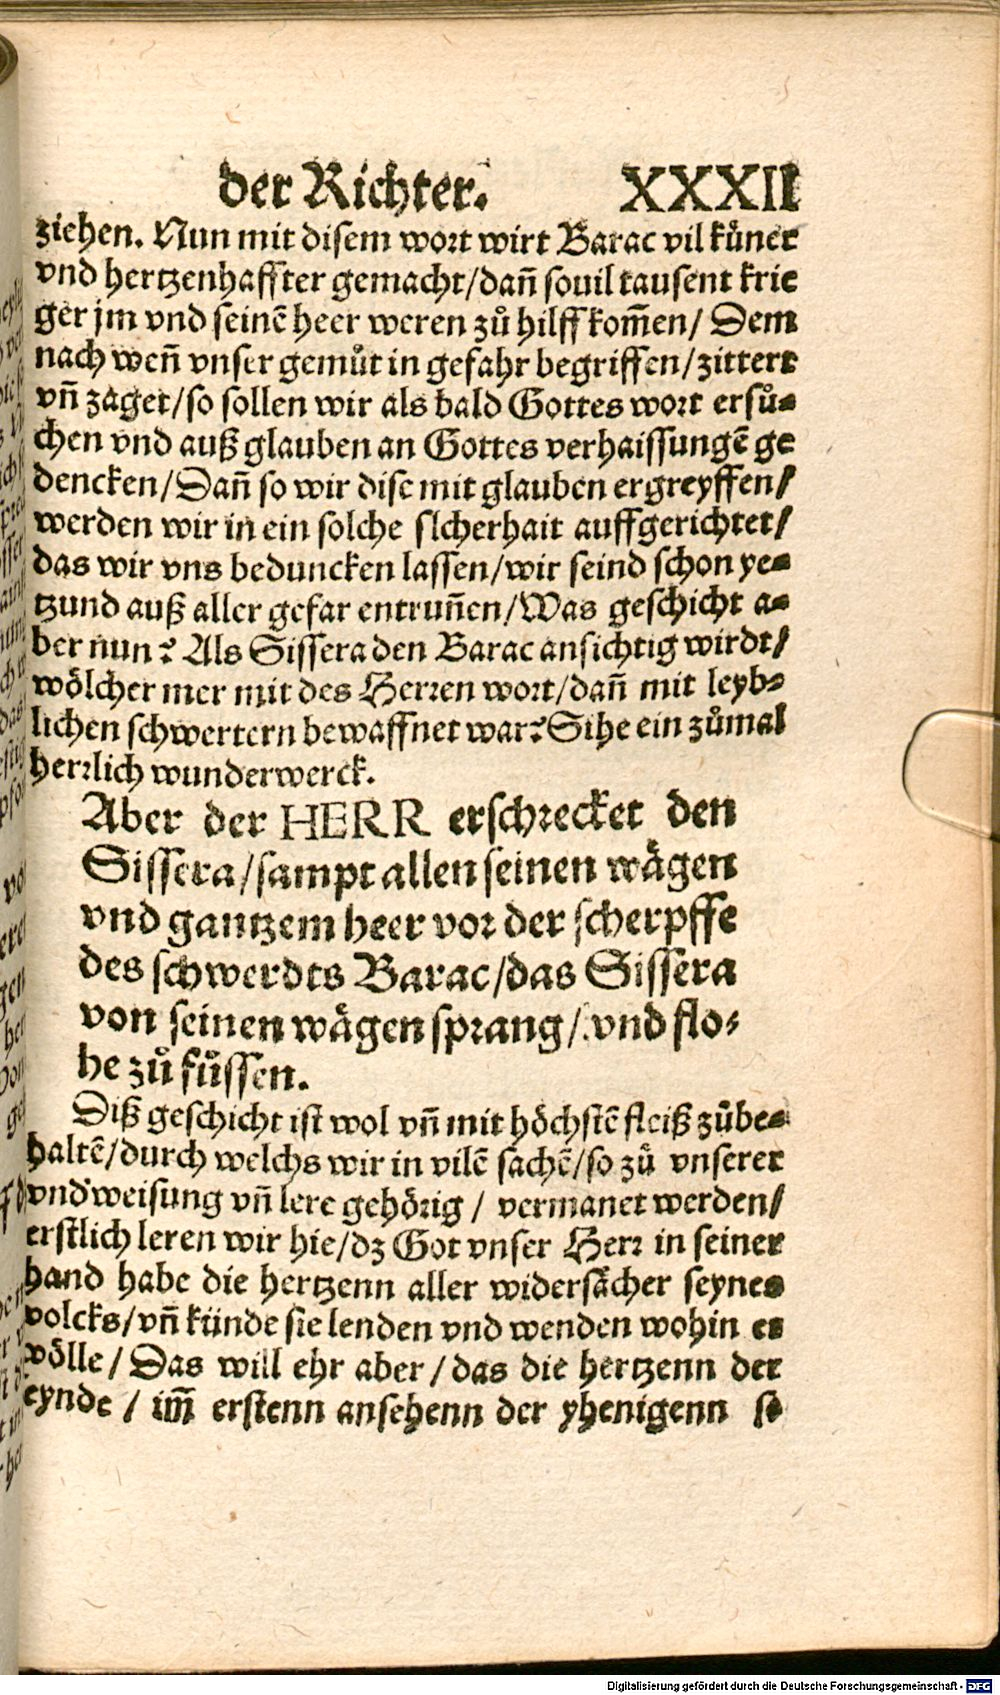 der Richter. XXXII
ziehen. Nun mit disem wort wirt Barac vil kuͤner
vnd hertzenhaffter gemacht/dañ souil tausent krie
ger jm vnd seinē heer weren zuͦ hilff kom̃en/ Dem
nach weñ vnser gemuͤt in gefahr begriffen/zittert
vñ zaget/so sollen wir als bald Gottes wort ersuͦ-
chen vnd auß glauben an Gottes verhaissungē ge
dencken/Dañ so wir dise mit glauben ergreyffen/
werden wir in ein solche sicherhait auffgerichtet/
das wir vns beduncken lassen/wir seind schon ye-
tzund auß aller gefar entruñen/Was geschicht a-
ber nun? Als Sissera den Barac ansichtig wirdt/
woͤlcher mer mit des Herren wort/dañ mit leyb-
lichen schwertern bewaffnet war? Sihe ein zuͦmal
herrlich wunderwerck.
Aber der HERR erschrecket den
Sissera/sampt allen seinen waͤgen
vnd gantzem heer vor der scherpffe
des schwerdts Barac/das Sissera
von seinen waͤgen sprang/ vnd flo-
he zuͦ fuͤssen.
Diß geschicht ist wol vñ mit hoͤchstē fleiß zuͦbe-
haltē/durch welchs wir in vilē sachē/so zuͦ vnserer
vndweisung vñ lere gehoͤrig / vermanet werden/
erstlich leren wir hie/dz Got vnser Herr in seiner
hand habe die hertzenn aller widersaͤcher seynes
volcks/vñ künde sie lenden vnd wenden wohin er
woͤlle / Das will ehr aber / das die hertzenn der
eynde / im̃ erstenn ansehenn der yhenigenn so
Digitalisierung gefördert durch die Deutsche Forschungsgemeinschaft - DFG